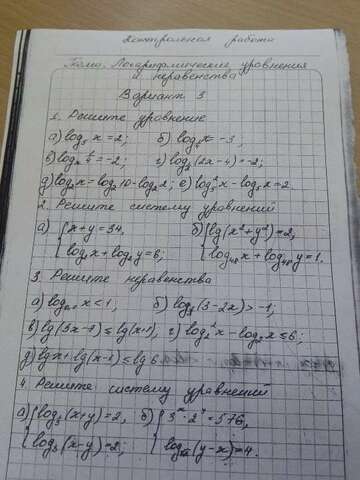 Контрольная работа
Тема: Логарифмические уравнения
и неравенства
Вариант 3
1. Решите уравнение
а) log₃ x = 2; б) log x = -3,
в) log = -2; г) log₂(2x-4) = -2;
д) log x = log 10 - log 2; е) log²x - log x = 2.
2. Решите систему уравнений
а) { x + y = 34, б) { lg(x² + y²) = 2,
{ log₂x + log₂y = 6; { log₄₈x + log₄₈y = 1.
3. Решите неравенства
а) log x < 1, б) log (3-2x) > -1;
в) lg(3x-7) ≤ lg(x+1), г) log₂²x - log₂x ≤ 6;
д) lg x + lg(x-1) ≤ lg 6
4. Решите систему уравнений
а) { log₃(x+y) = 2, б) { 3ˣ · 2ʸ = 576,
{ log₃(x-y) = 2; { log (y-x) = 4.